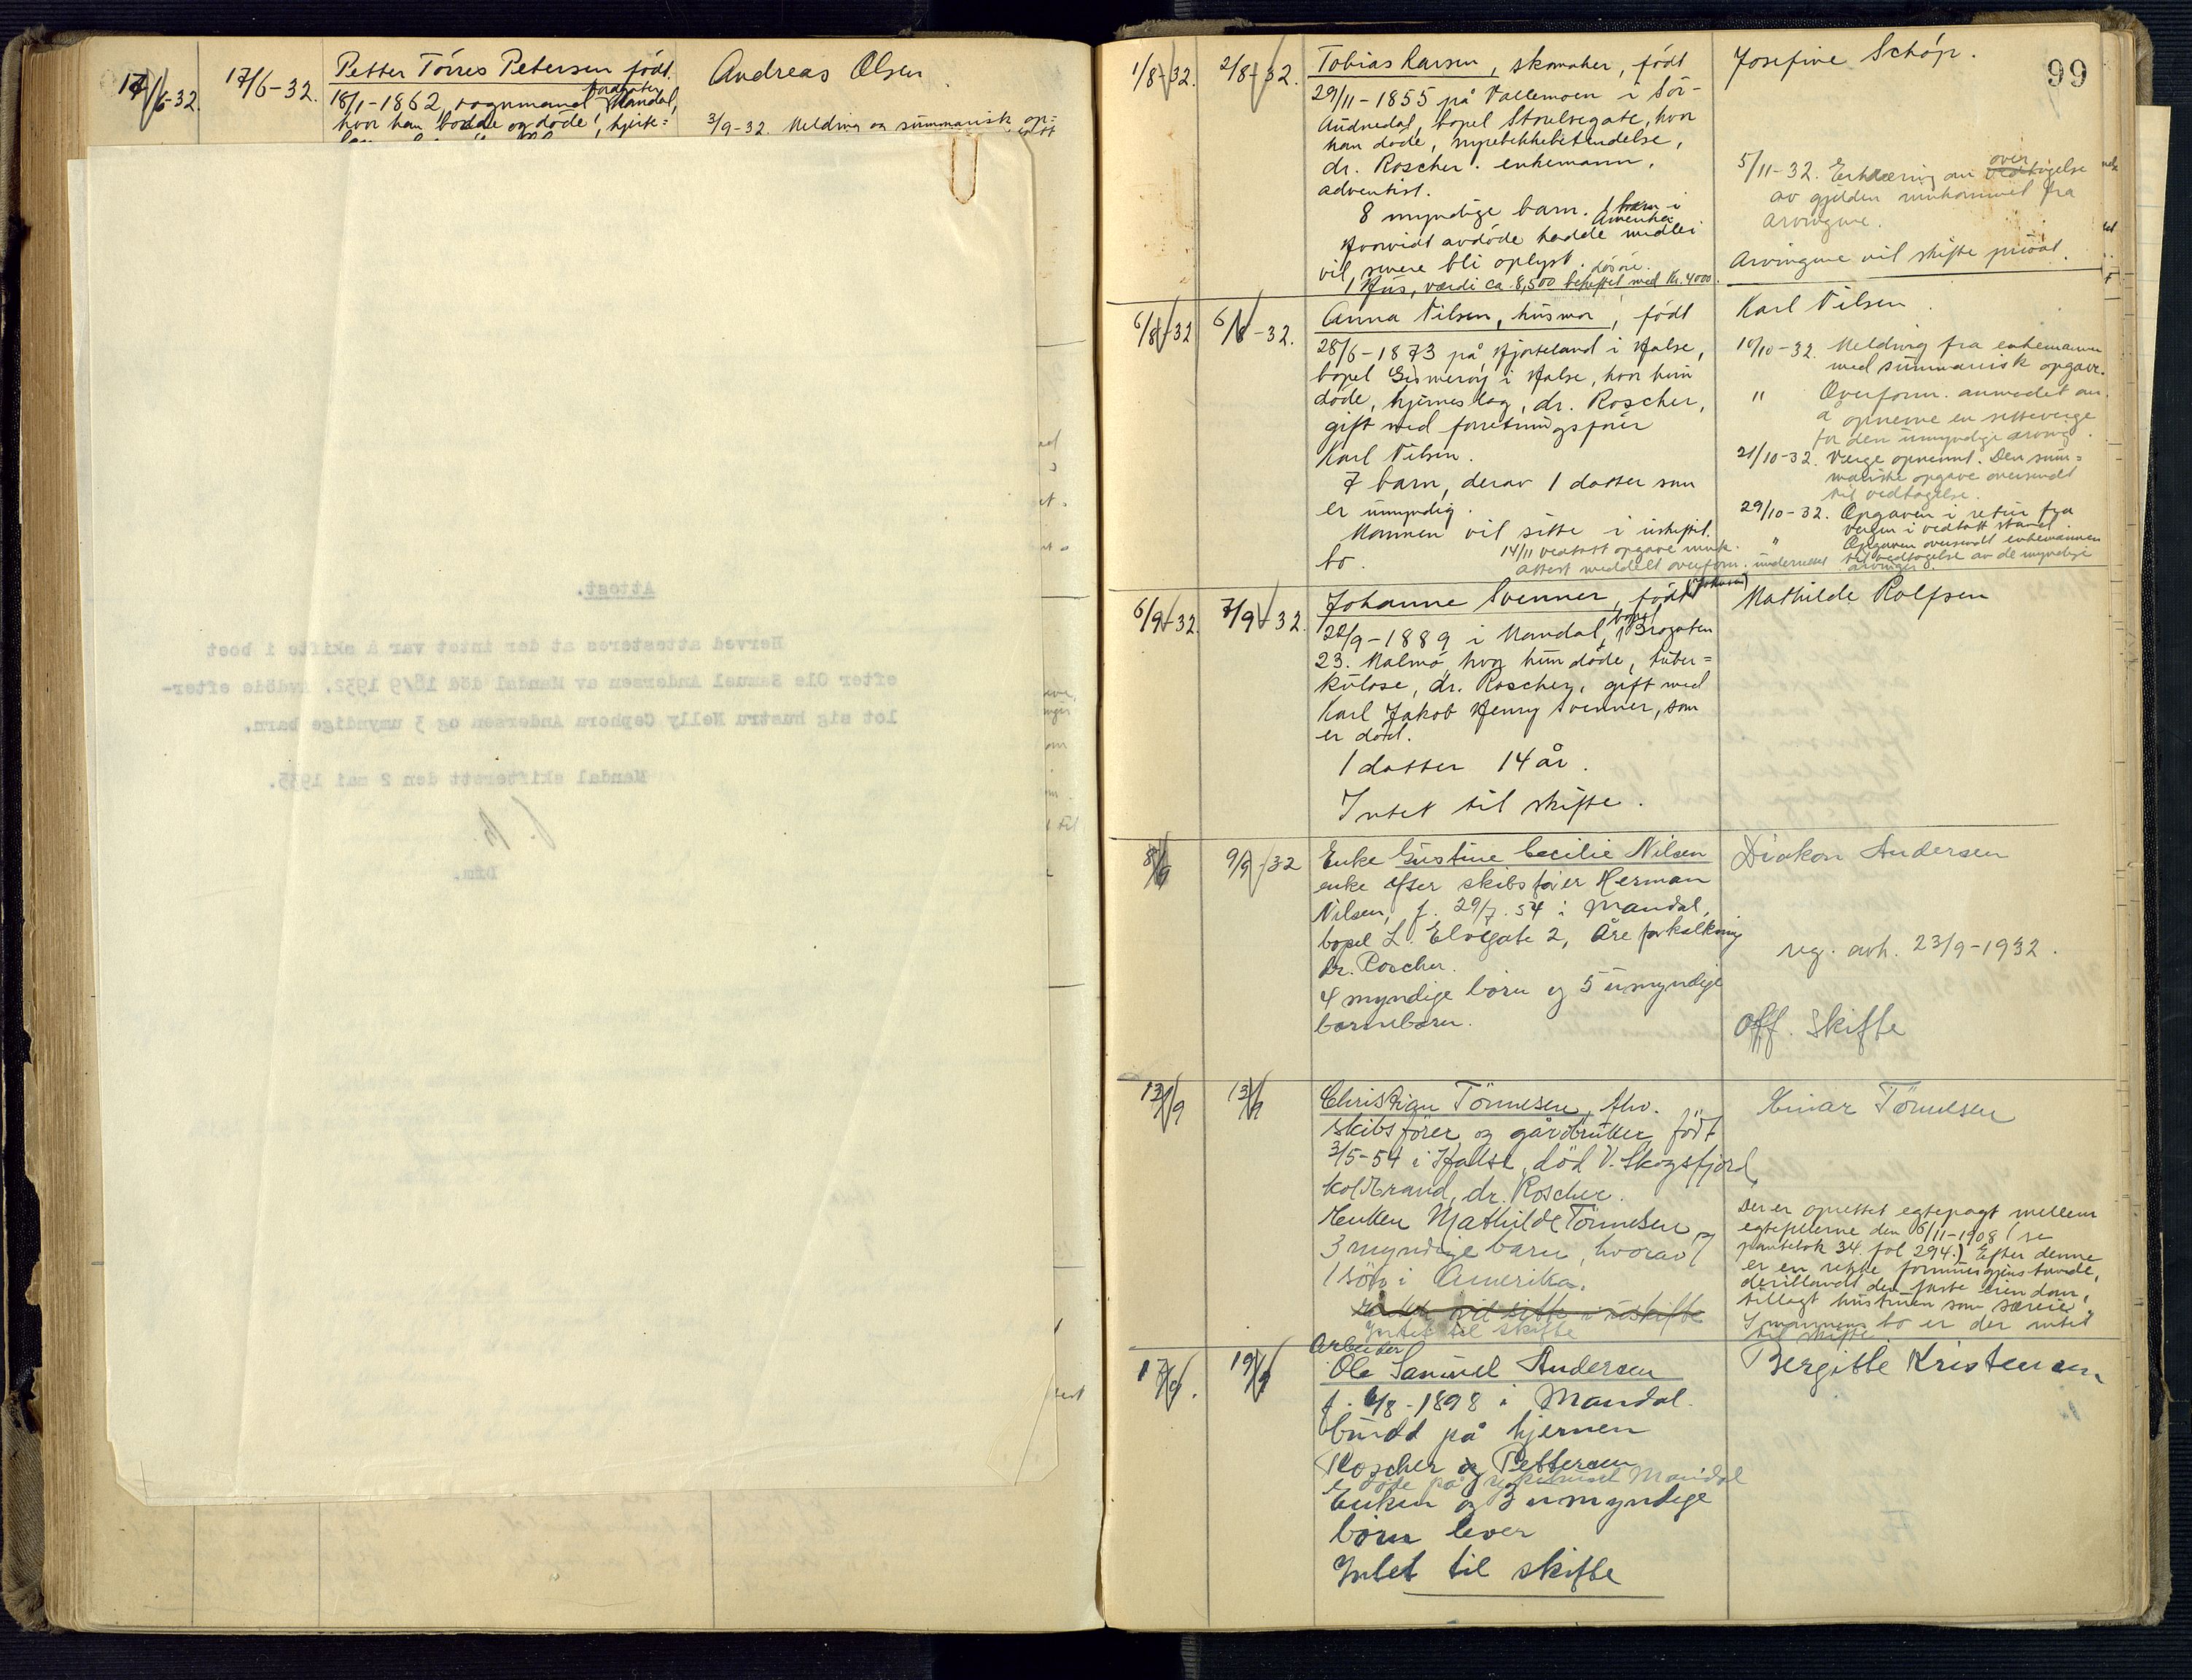 17/6-32. 17/6-32. Petter Törres Petersen født
18/1-1862, rognmand Mandal,
hvor han bodde og døde, hjerte=
Andreas Olsen
3/9-32 Melding om summarisk op=
Attest.
Herved attesteres at der intet var å skifte i boet
efter Ole Samuel Andersen av Mandal död 18/9 1932. Avdöde efter-
lot sig hustru Nelly Cephora Andersen og 3 umyndige barn.
Mandal skifterett den 2 mai 1935.
Dfm.
99
1/8-32. 2/8-32. Tobias Larsen, skomaker, født
29/11-1855 på Vallemoen i Sör-
Audnedal, bopel Storelvegate, hvor
han døde, nyrebekkebetendelse,
dr. Roscher. enkemann,
adventist.
8 myndige barn. 1 barn i
Amerika
Hvorvidt avdøde hadde midler
vil senere bli oplyst. løsøre.
1 Hus, værdi ca. 8,500 beheftet med Kr. 4000.
Josefine Schöp.
5/11-32. Erklæring om over
tagelse
av gjelden innkommet fra
arvingene.
Arvingene vil skifte privat.
6/8-32 6/8-32. Anna Nilsen, husmor, født
28/6-1873 på Hjorteland i Halse,
bopel Gismerøy i Halse, hvor hun
døde, hjerneslag, dr. Roscher,
gift med forretningsfører
Karl Nilsen.
7 barn, derav 1 datter som
er umyndig.
Mannen vil sitte i uskiftet
bo.
14/11 vedtatt opgave innk.
attest meddelt overform. underrettet
Karl Nilsen
10/10-32. Melding fra enkemannen
med summarisk opgave.
" Overform. anmodet om
å opnevne en setteverge
for den umyndige arving.
21/10-32. Verge opnevnt. Den sum=
mariske opgave oversendt
til vedtagelse.
29/10-32. Opgaven i retur fra
vergen i vedtatt stand.
" Opgaven oversendt enkemannen
til vedtagelse av de myndige
arvinger.
6/9-32. 7/9-32 Johanne Svenner, født (Johnsen)
22/9-1889 i Mandal, bopel Brogaten
23. Malmö, hvor hun døde, tuber=
kulose, dr. Roscher, gift med
Karl Jakob Henry Svenner, som
er død.
1 datter 14 år.
Intet til skifte.
Mathilde Rolfsen
8/9 9/9-32 Enke Gustine Cecilie Nilsen
enke efter skibsfører Herman
Nilsen, f. 29/7.54 i Mandal,
bopel L. Elvegate 2, Åreforkalkning
dr. Roscher.
4 myndige børn og 5 umyndige
barnebarn.
Diakon Andersen
reg. avh. 23/9-1932.
Off. Skifte
12/9 13/9 Christian Tönnesen, fhv.
skibsfører og gårdbruker født
3/5-54 i Halse, död V. Skogsfjord
koldbrand, dr. Roscher.
Enken Mathilde Tönnesen
3 myndige barn, hvorav
1 sön i Amerika.
Enken vil sitte i uskifte
Intet til skifte
Einar Tönnesen
Der er oprettet egtepagt mellem
egtefellerne den 6/11-1908 (se
pantebok 34. fol 294.) Efter denne
er en rekke formuesgjenstande,
deriblandt den faste eiendom,
tillagt hustruen som særeie.
I mannens bo er der intet
til skifte.
17/9. 19/9 Arbeider
Ole Samuel Andersen
f. 6/8-1898 i Mandal.
byld på hjernen
Roscher og Pettersen
døde på sykehuset Mandal
Enken og 3 umyndige
børn lever
Intet til skifte
Bergitte Kristensen.